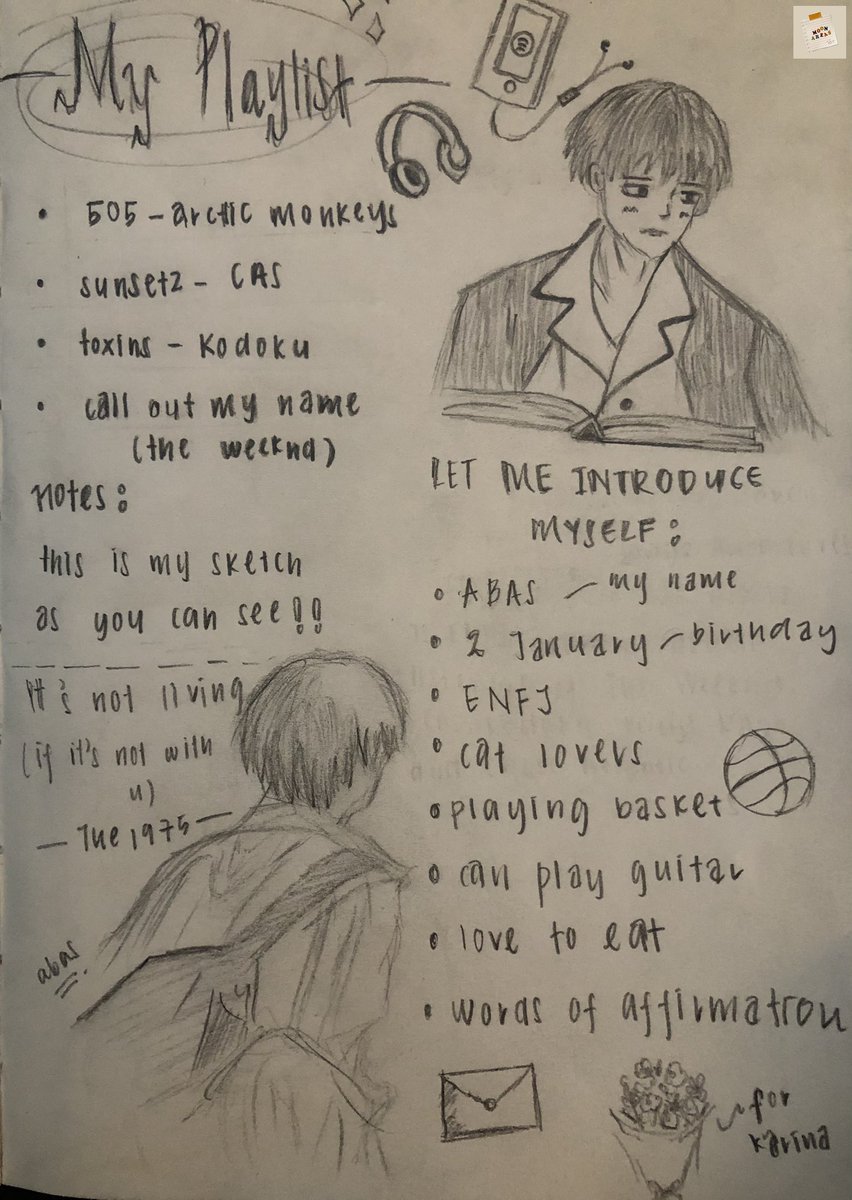 My Playlist
• 505 - arctic monkeys
• sunsetz - CAS
• toxins - Kodoku
• call out my name
(the weeknd)
notes:
this is my sketch
as you can see!!
It's not living
(if it's not with
u)
— The 1975 —
abas
LET ME INTRODUCE
MYSELF:
• ABAS — my name
• 2 January — birthday
• ENFJ
• cat lovers
• playing basket
• can play guitar
• love to eat
• words of affirmation
for
karina
MOON
AREAS